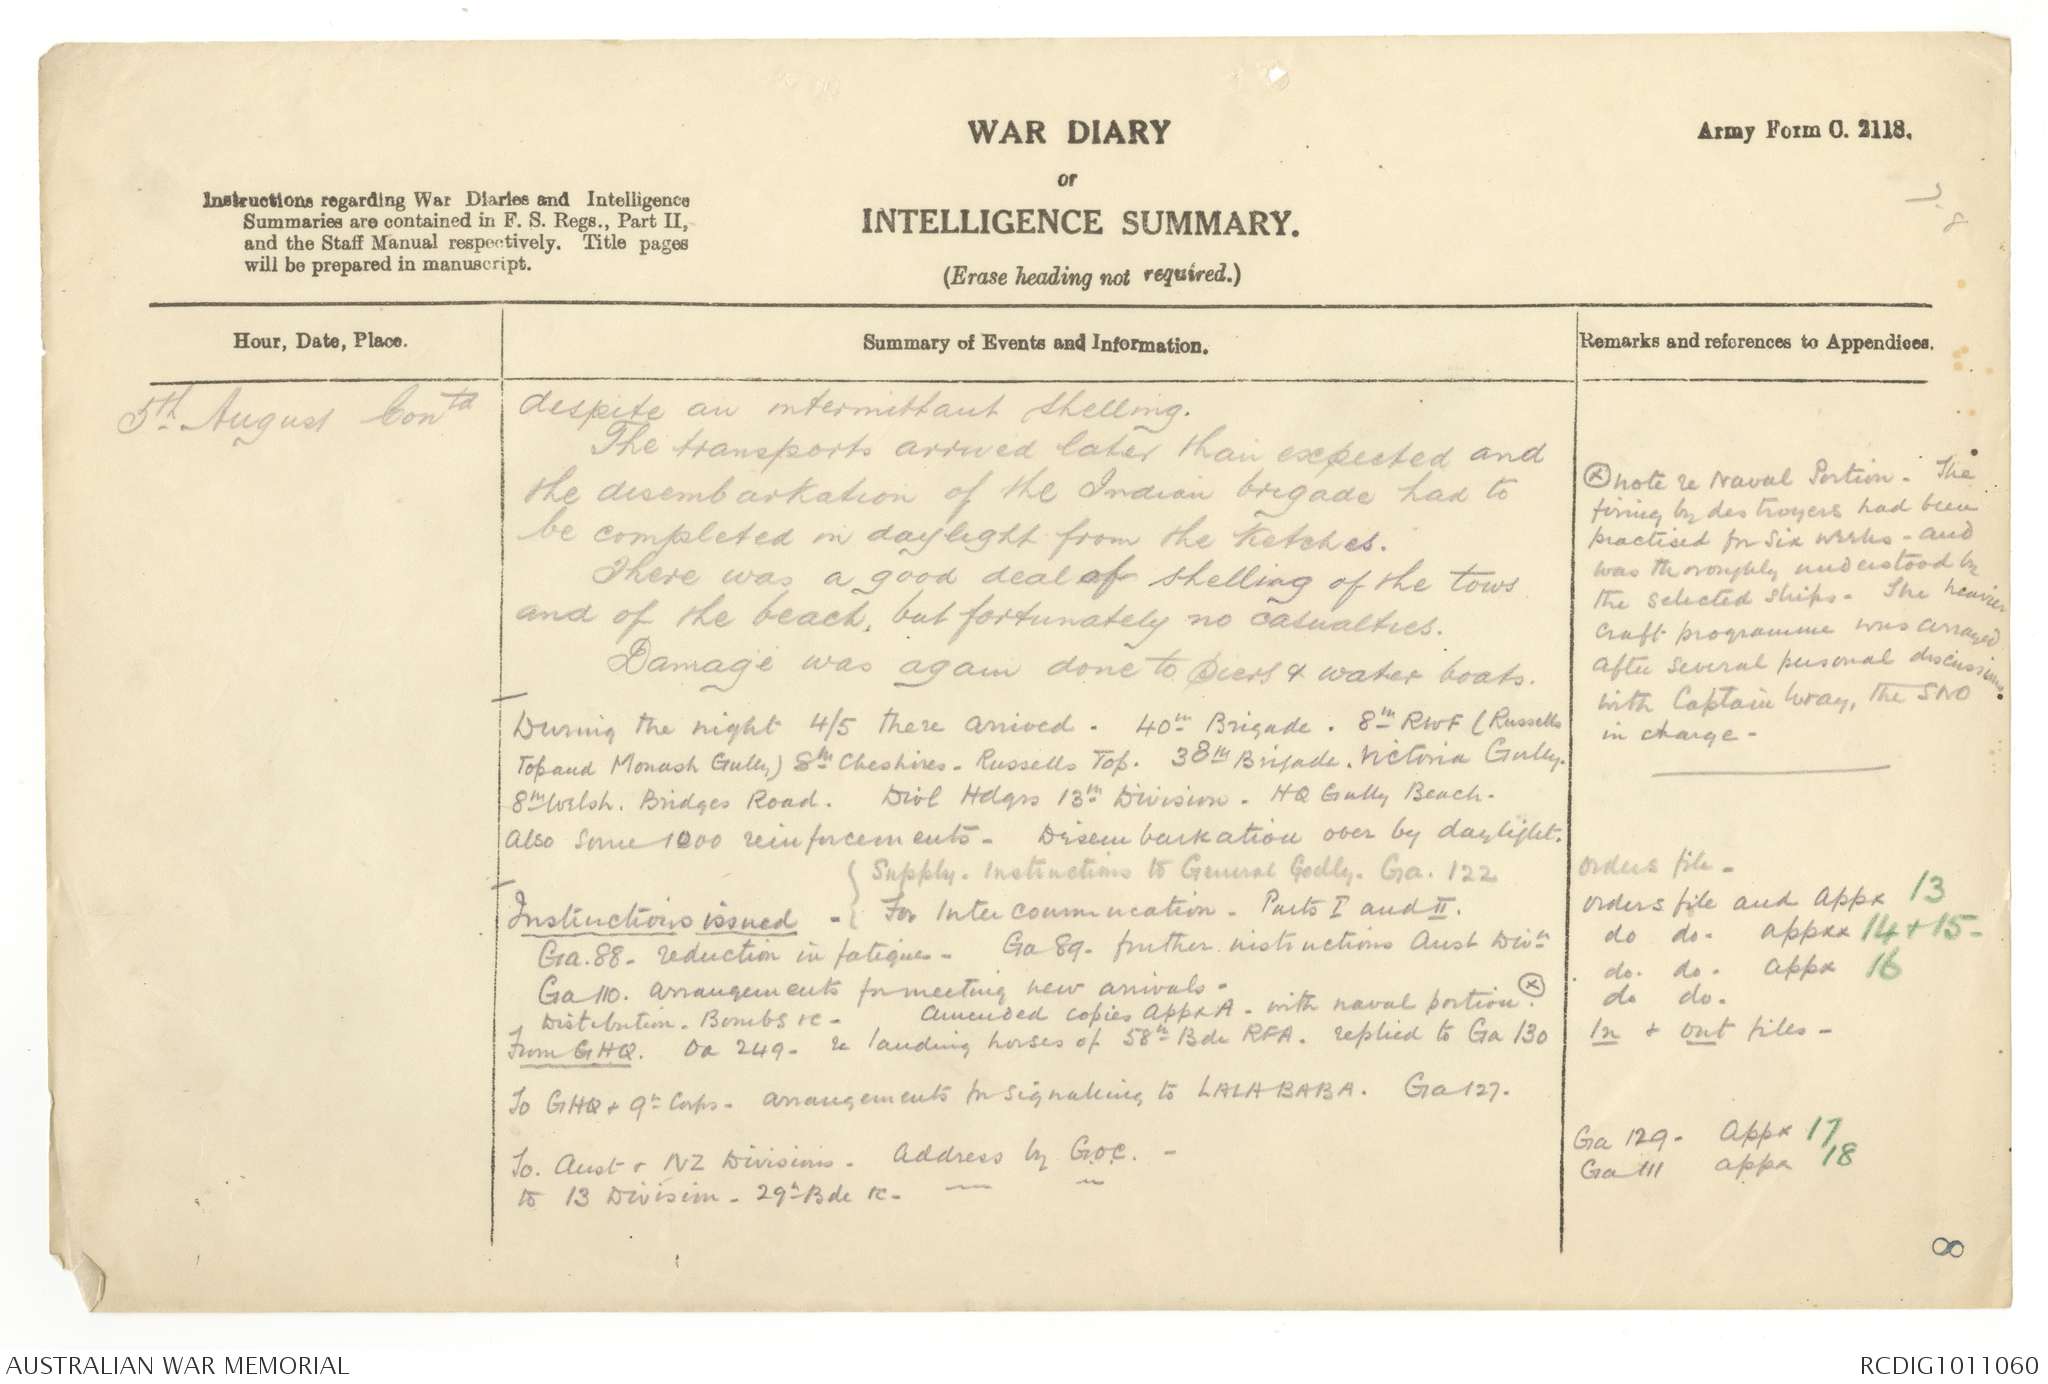 WAR DIARY
or
INTELLIGENCE SUMMARY.
(Erase heading not required.)
Army Form C. 2118.
Instructions regarding War Diaries and Intelligence
Summaries are contained in F. S. Regs., Part II,
and the Staff Manual respectively. Title pages
will be prepared in manuscript.
Hour, Date, Place.
Summary of Events and Information.
Remarks and references to Appendices.
5th August Contd
despite an intermittant shelling.
The transports arrived later than expected and
the disembarkation of the Indian brigade had to
be completed in daylight from the ketches.
There was a good deal of shelling of the tows
and of the beach, but fortunately no casualties.
Damage was again done to piers & water boats.
During the night 4/5 there arrived - 40th Brigade. 8th RWF (Russells
Top and Monash Gully) 8th Cheshires - Russells Top. 38th Brigade. Victoria Gully.
8th Welsh. Bridges Road. Divl Hdqrs 13th Division - HQ Gully Beach.
Also some 1000 reinforcements - Disembarkation over by daylight.
Supply. Instructions to General Godly. Ga. 122
Instructions issued - For Inter communication - Parts I and II.
Ga. 88 - reduction in fatigues - Ga 89 - further instructions Aust Divn
Ga 110. arrangements for meeting new arrivals -
Distribution - Bombs &c - Amended copies Appx A - with naval portion (x)
From GHQ. Oa 249 - re landing horses of 58th Bde RFA. replied to Ga 130
To GHQ & 9th Corps - arrangements for signalling to LALA BABA. Ga 127.
To. Aust & NZ Divisions - Address by G.O.C. -
to 13 Division - 29th Bde &c - — "
(x) note re Naval Portion - The
firing by destroyers had been
practised for six weeks - and
was thoroughly understood by
the selected ships - The heavier
craft programme was arranged
after several personal discussions
with Captain Wray, the SNO
in charge -
orders file -
orders file and Appx 13
do do - appxx 14 + 15 -
do. do. appx 16
do do.
In & out files -
Ga 129 - Appx 17
Ga 111 appx 18
8
AUSTRALIAN WAR MEMORIAL
RCDIG1011060